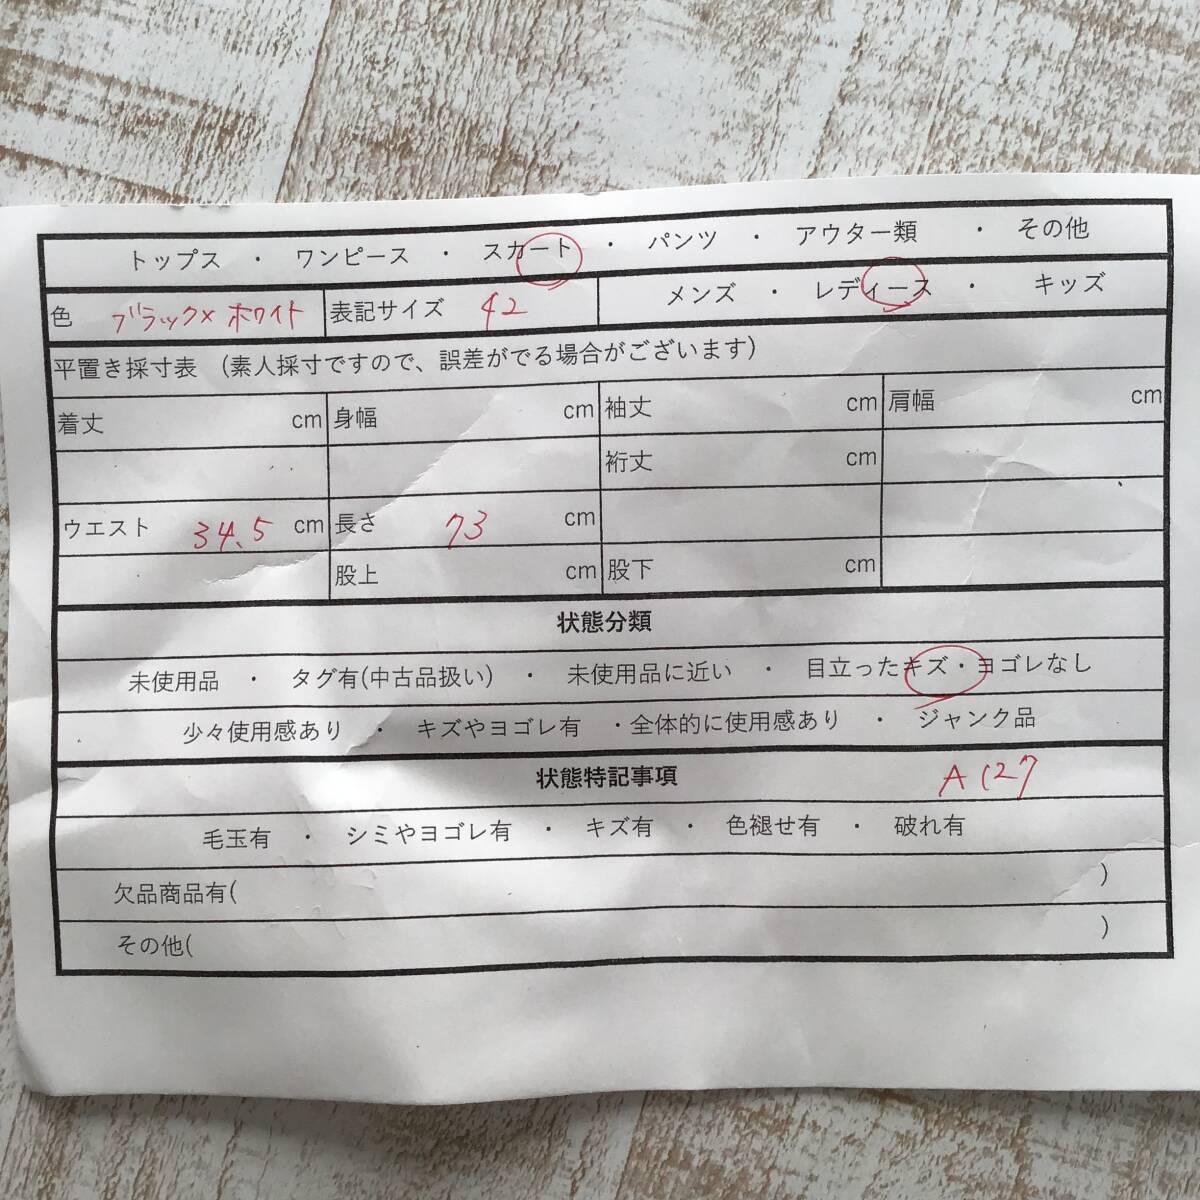 トップス ・ ワンピース ・ スカート ・ パンツ ・ アウター類 ・ その他
色 ブラック×ホワイト 表記サイズ 42 メンズ ・ レディース ・ キッズ
平置き採寸表 (素人採寸ですので、誤差がでる場合がございます)
着丈 cm 身幅 cm 袖丈 cm 肩幅 cm
裄丈 cm
ウエスト 34.5 cm 長さ 73 cm
股上 cm 股下 cm
状態分類
未使用品 ・ タグ有(中古品扱い) ・ 未使用品に近い ・ 目立ったキズ・ヨゴレなし
少々使用感あり ・ キズやヨゴレ有 ・全体的に使用感あり ・ ジャンク品
状態特記事項 A127
毛玉有 ・ シミやヨゴレ有 ・ キズ有 ・ 色褪せ有 ・ 破れ有
欠品商品有( )
その他( )